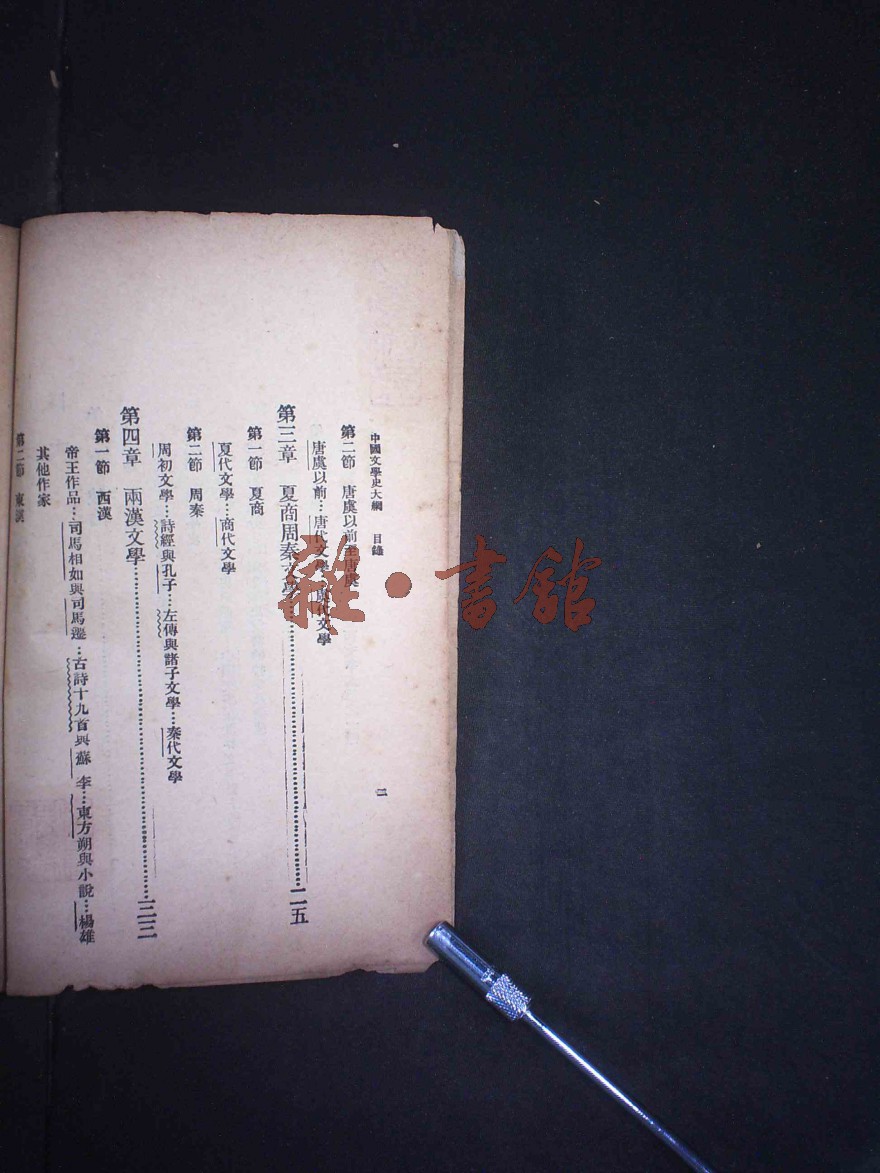 中國文學史大綱 目錄
二
第二節 唐虞以前至唐虞
唐虞以前…唐代文學…虞代文學
第三章 夏商周秦文學……二五
第一節 夏商
夏代文學…商代文學
第二節 周秦
周初文學…詩經與孔子…左傳與諸子文學…秦代文學
第四章 兩漢文學……
第一節 西漢
帝王作品…司馬相如與司馬遷…古詩十九首與蘇李…東方朔與小說…楊雄
其他作家
第二節 東漢
雜·書館